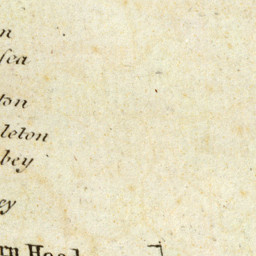 n
sea
ton
leton
bey
ey
rn Head